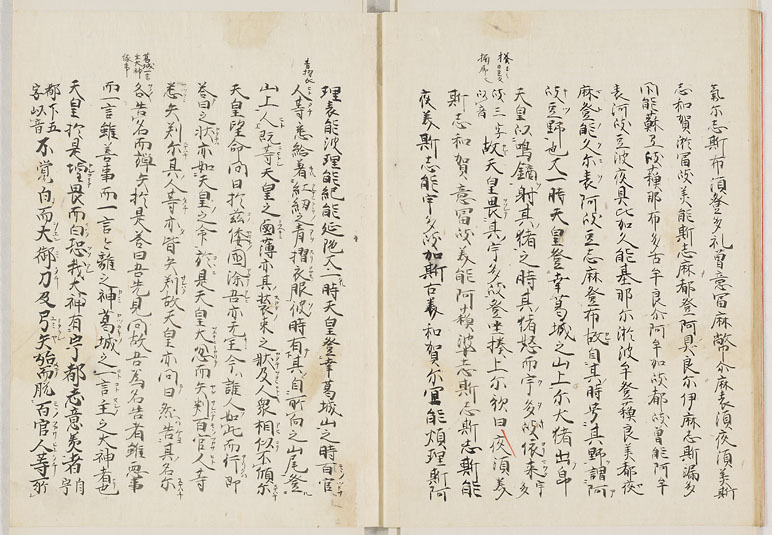 氣尓志斯布須登多礼曽意富麻幣尓麻袁須夜須美斯
志和賀淤冨岐美能斯志麻都登阿具良尓伊麻志斯漏多
閇能蘇弖岐蘇那布多古牟良尓阿牟加岐都岐曽能阿牟
袁阿岐豆波夜具比加久能碁那尓淤波牟登蘓良美都夜
麻登能久尓袁阿岐豆志麻登布故自其時号其野謂阿
岐豆野也又一時天皇登幸葛城之山上尓大猪出即
天皇以鳴鏑射其猪之時其猪怒而宇多岐依来宇多
岐三字以音故天皇畏其宇多岐登坐榛上尓歌曰夜須美
斯志和賀意冨岐美能阿蘓婆志斯志斯能
夜美斯志能宇多岐加斯古美和賀尓宜能煩理斯阿
理袁能波理能紀能延陁又一時天皇登幸葛城山之時百官
青摺衣
人等悉給著紅紐之青摺衣服彼時有其自所向之山尾登
山上人既等天皇之鹵薄亦其装束之状及人衆相似不傾尓
天皇望令問曰於茲倭國除吾亦无王今誰人如此而行即
荅曰之状亦如天皇之命於是天皇大忿而矢刺百官人等
悉矢刺尓其人等亦皆矢刺故天皇亦問曰然告其名尓
各告名而弾矢於是荅曰吾先見問故吾為名告者雖悪事
而一言雖善事而一言言離之神葛城之一言主之大神者也
天皇於是惶畏而白恐我大神有宇都志意美者自宇
都下五字以音不覚白而大御刀及弓矢始而脱百官人等所